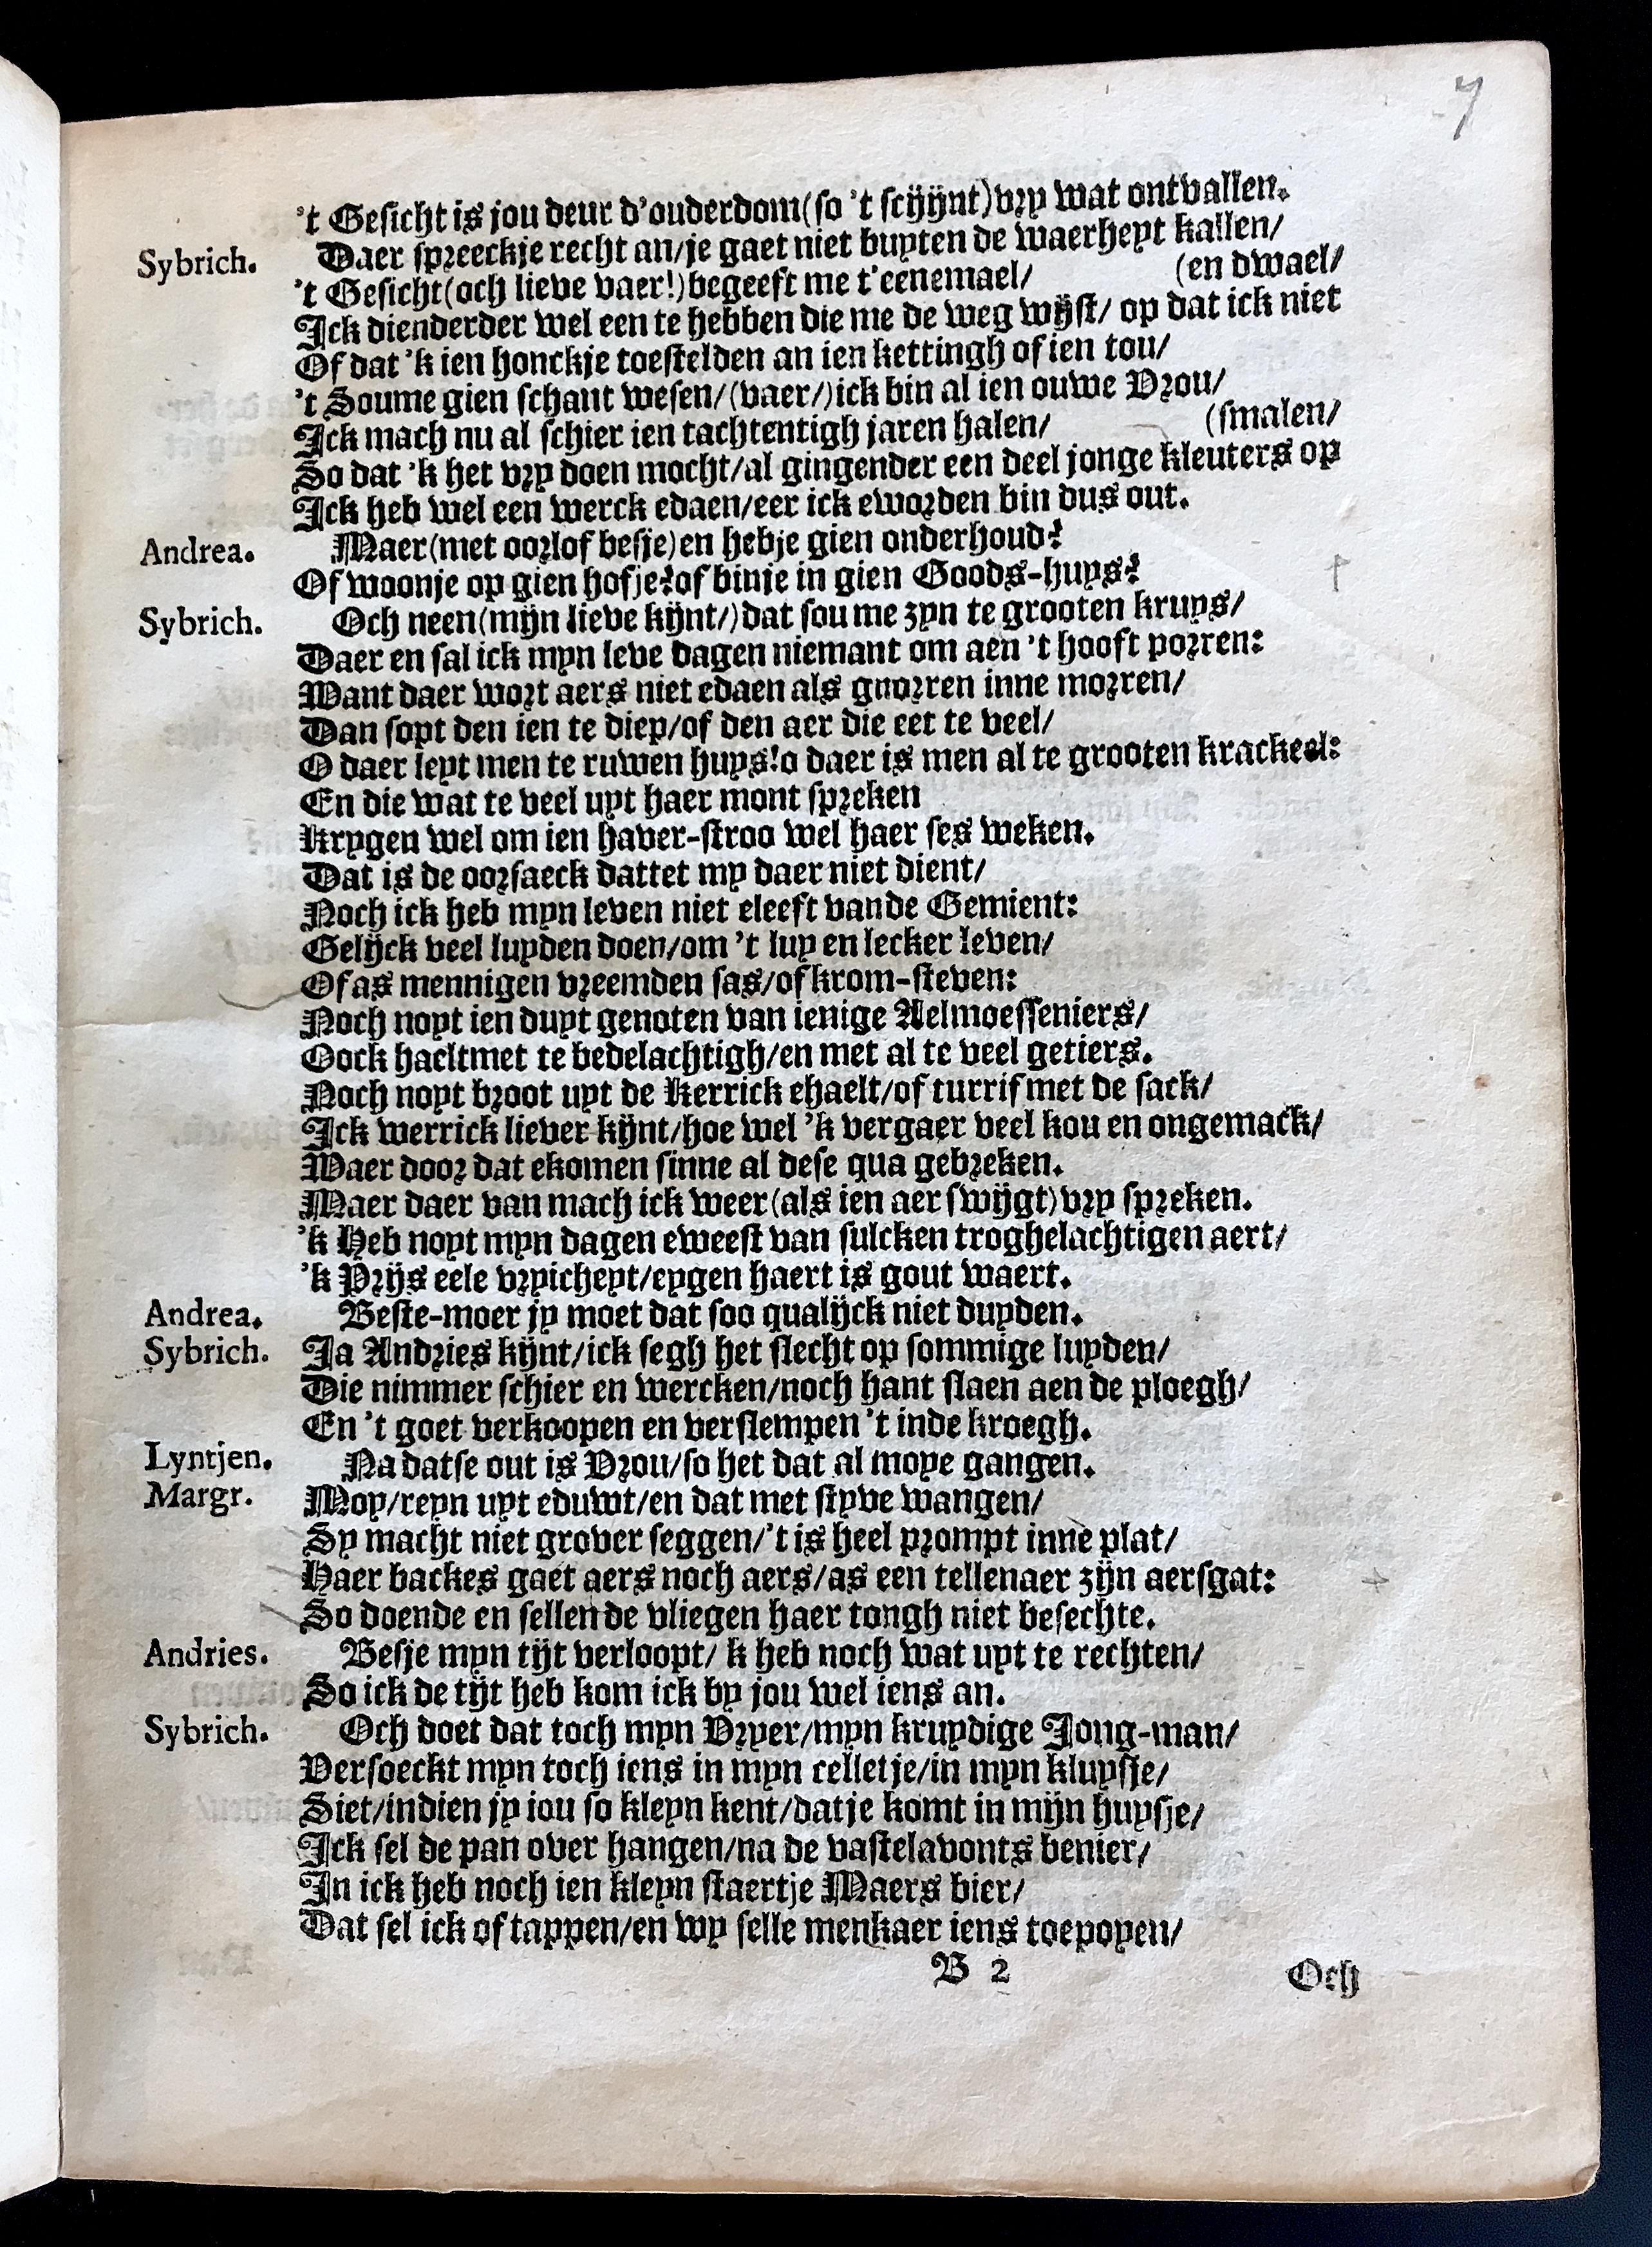 7
't Gesicht is jou deur d'ouderdom(so 't scÿÿnt)vry wat ontvallen.
Sybrich. Daer spreeckje recht an/je gaet niet buyten de waerheyt kallen/
't Gesicht(och lieve vaer!)begeeft me t'eenemael/ (en dwael/
Ick dienderder wel een te hebben die me de weg wÿst/ op dat ick niet
Of dat 'k ien honckje toestelden an ien kettingh of ien tou/
't Soume gien schant wesen/(vaer/)ick bin al ien ouwe Vrou/
Ick mach nu al schier ien tachtentigh jaren halen/ (smalen/
So dat 'k het vry doen mocht/al gingender een deel jonge kleuters op
Ick heb wel een werck edaen/eer ick eworden bin dus out.
Andrea. Maer(met oorlof besje)en hebje gien onderhoud?
Of woonje op gien hofje?of binje in gien Goods-huys?
Sybrich. Och neen(mÿn lieve kÿnt/)dat sou me zyn te grooten kruys/
Daer en sal ick myn leve dagen niemant om aen 't hooft porren:
Want daer wort aers niet edaen als gnorren inne morren/
Dan sopt den ien te diep/of den aer die eet te veel/
O daer leyt men te ruwen huys!o daer is men al te grooten krackeel:
En die wat te veel uyt haer mont spreken
Krygen wel om ien haver-stroo wel haer ses weken.
Dat is de oorsaeck dattet my daer niet dient/
Noch ick heb myn leven niet eleeft vande Gemient:
Gelÿck veel luyden doen/om 't luy en lecker leven/
Of as mennigen vreemden sas/of krom-steven:
Noch noyt ien duyt genoten van ienige Aelmoesseniers/
Oock haeltmet te bedelachtigh/en met al te veel getiers.
Noch noyt broot uyt de Kerrick ehaelt/of turrif met de sack/
Ick werrick liever kÿnt/hoe wel 'k vergaer veel kou en ongemack/
Waer door dat ekomen sinne al dese qua gebreken.
Maer daer van mach ick weer(als ien aer swÿgt)vry spreken.
'k Heb noyt myn dagen eweest van sulcken troghelachtigen aert/
'k Prÿs eele vryicheyt/eygen haert is gout waert.
Andrea. Beste-moer jy moet dat soo qualÿck niet duyden.
Sybrich. Ja Andries kÿnt/ick segh het slecht op sommige luyden/
Die nimmer schier en wercken/noch hant slaen aen de ploegh/
En 't goet verkoopen en verslempen 't inde kroegh.
Lyntjen. Na datse out is Vrou/so het dat al moye gangen.
Margr. Moy/reyn uyt eduwt/en dat met styve wangen/
Sy macht niet grover seggen/'t is heel prompt inne plat/
Haer backes gaet aers noch aers/as een tellenaer zÿn aersgat:
So doende en sellen de vliegen haer tongh niet besechte.
Andries. Besje myn tÿt verloopt/ k heb noch wat uyt te rechten/
So ick de tÿt heb kom ick by jou wel iens an.
Sybrich. Och doet dat toch myn Vryer/myn kruydige Jong-man/
Versoeckt myn toch iens in myn celletje/in myn kluysje/
Siet/indien jy iou so kleyn kent/datje komt in mÿn huysje/
Ick sel de pan over hangen/na de vastelavonts benier/
In ick heb noch ien kleyn staertje Maers bier/
Dat sel ick of tappen/en wy selle menkaer iens toepoyen/
B 2 Och